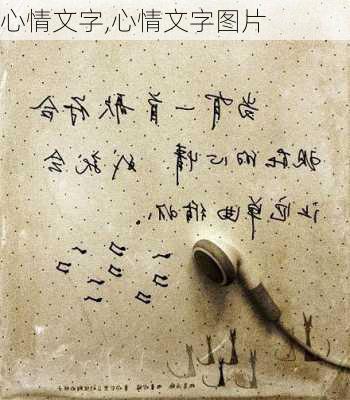 心情文字,心情文字图片
当有一首歌符合
现在的心情 我就会
让它单曲循环。